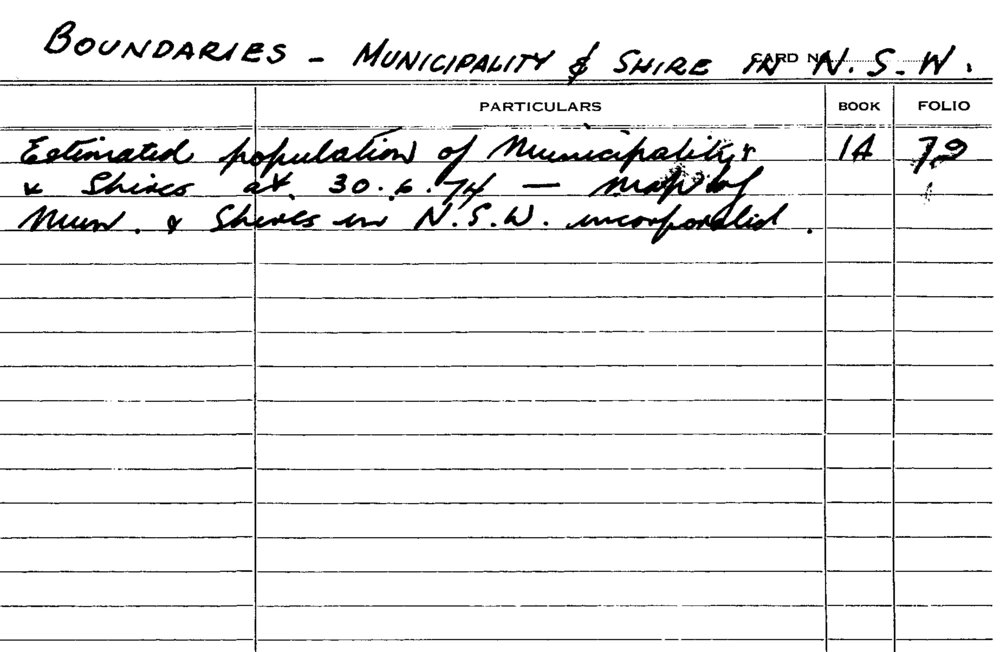 BOUNDARIES - MUNICIPALITY & SHIRE IN N.S.W.
CARD NO.
PARTICULARS BOOK FOLIO
Estimated population of Municipality 1A 79
& Shires at 30.6.74 — map of
Mun. & Shires in N.S.W. incorporated.